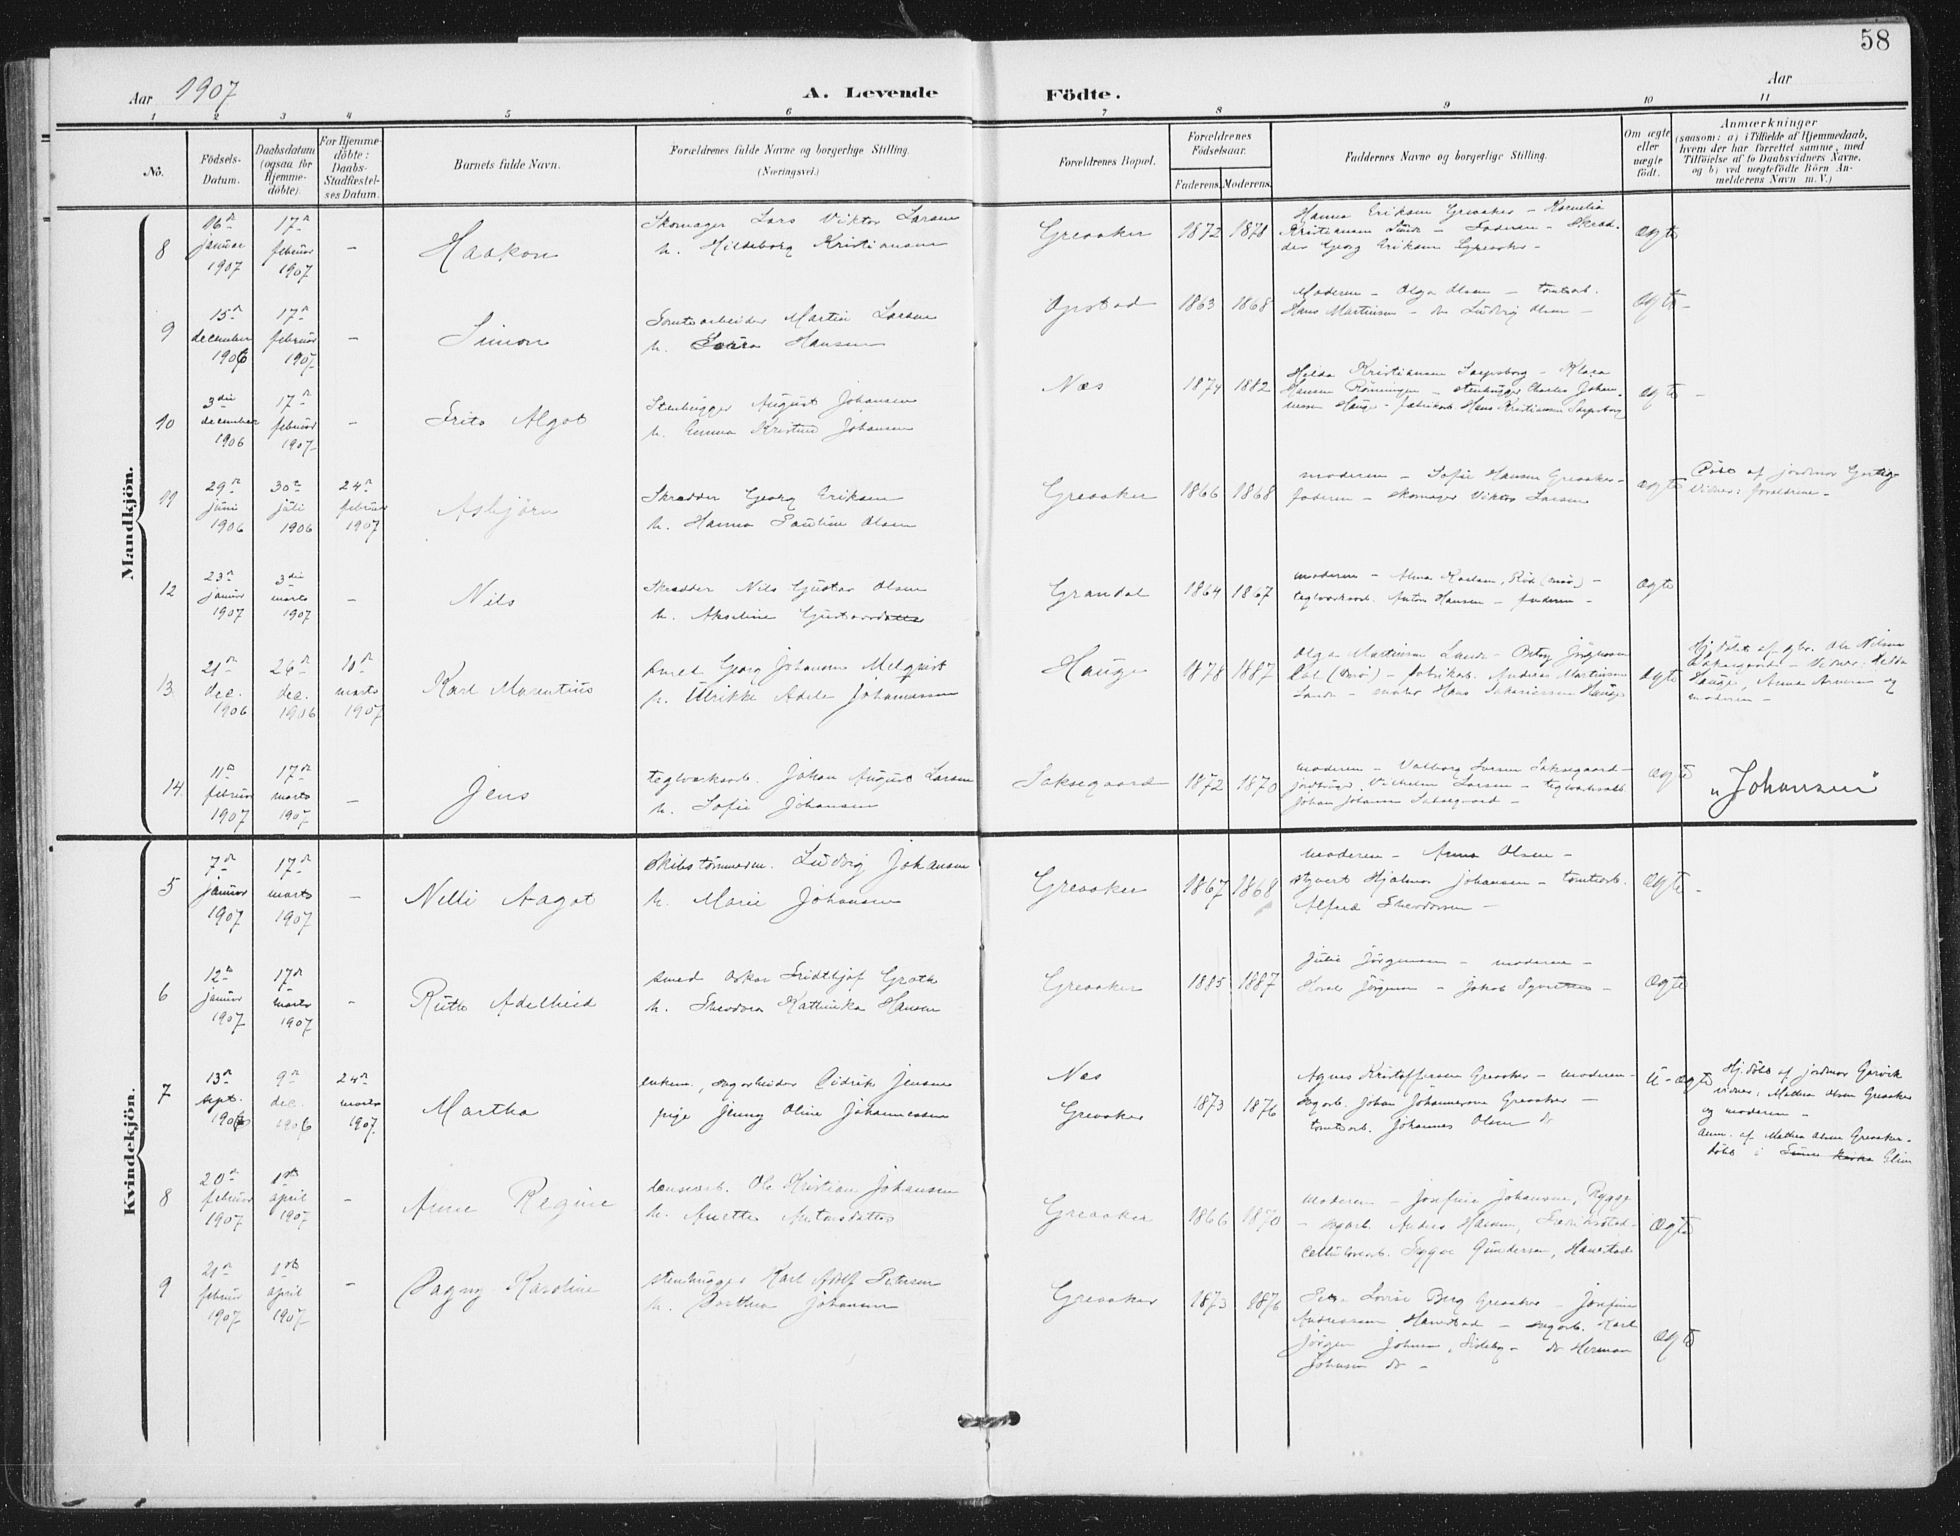 58
Aar 1907
A. Levende Födte.
Aar
1 2 3 4 5 6 7 8 9 10 11
No.
Födsels-
Datum.
Daabsdatum
(ogsaa for
Hjemme-
döbte).
For Hjemme-
döbte:
Daabs-
Stadfæstel-
ses Datum.
Barnets fulde Navn.
Forældrenes fulde Navne og borgerlige Stilling.
(Næringsvei.)
Forældrenes Bopæl.
Forældrenes
Födselsaar.
Faderens. Moderens.
Faddernes Navne og borgerlige Stilling.
Om ægte
eller
uægte
födt.
Anmærkninger
(saasom: a) i Tilfælde af Hjemmedaab,
hvem der har forrettet samme, med
Tilföielse af to Daabsvidners Navne,
og b) ved uægtefödte Börn An-
melderens Navn m. V.)
Mandkjön.
8
16 januar 1907
17 februar 1907
–
Haakon
Skomager Lars Viktor Larsen
h. Hildeborg Kristiansen
Greaaker
1872 1878
Hanna Eriksen Greaaker – Kornelia
Kristiansen – Faderen – Skræd-
der Georg Eriksen Greaaker –
ægte
9
15 december 1906
17 februar 1907
–
Simon
Tomtearbeider Martin Larsen
h. Hansen
Opstad
1863 1868
Moderen – Olga Olsen – tomtearb.
Hans Martinsen – do Ludvig Olsen –
ægte –
10
3die december 1906
17 februar 1907
–
Frits Algot
Stenhugger August Johansen
h. Emma Kristine Johansen
Næs
1874 1882
Hilda Kristiansen Sarpsborg – Klara
Hansen Rönningen – stenhugger Charles Johan-
nesen Hauge – fabrikarb. Hans Kristiansen Sarpsborg
ægte –
11
29 juni 1906
30te juli 1906
24 februar 1907
Asbjörn
Skrædder Georg Eriksen
h. Hanna Pauline Olsen
Greaaker
1866 1868
moderen – Sofie Hansen Greaaker –
faderen – skomager Viktor Larsen
ægte
af jordmor
Vidner: forældrene –
12
23 januar 1907
3die marts 1907
–
Nils
Skrædder Nils Gustav Olsen
h. Akseline Gustavsdatter
Grandal
1864 1867
moderen – Anna Karlsen, Röd –
teglværksarb. Anton Hansen – faderen –
ægte
13
21 dec. 1906
26 dec. 1906
10 marts 1907
Karl Marentius
smed Georg Johansen Melqvist
h. Ulrikke Adele Johannessen
Hauge
1878 1887
Olga Martinsen Lande –
– fabrikarb. Andreas Martinsen
Lande – Hans Hauge
ægte
Hj. döbt af Ole Nilsen
Saksegaard – Vidner: Hilda
Hauge, Anna og
moderen –
14
11 februar 1907
17 marts 1907
–
Jens
teglværksarb. Johan August Larsen
h. Sofie Johansen
Saksegaard
1872 1870
moderen – Valborg Larsen Saksegaard –
Vilhelm Larsen – teglværksarb.
Johan Johansen Saksegaard –
ægte
"Johansen"
Kvindekjön.
5
7 januar 1907
17 marts 1907
–
Nelli Aagot
skibstömmerm. Ludvig Johansen
h. Marie Johansen
Greaaker
1867 1868
moderen – Anna Olsen –
styrert Hjalmar Johansen – tomtearb.
Alfred Theodorsen –
ægte –
6
12 januar 1907
17 marts 1907
–
Ruth Adelheid
smed Oskar Fridthjof Groth
h. Theodora Kathinka Hansen
Greaaker
1885 1887
Julie Jörgensen – moderen –
Jörgensen – Jakob Syvertsen –
ægte
7
13 sept. 1906
9 dec. 1906
24 marts 1907
Martha
enkem., sagarbeider Didrik Jensen
pige Jenny Oline Johannessen
Næs
Greaaker
1873 1876
Agnes Kristoffersen Greaaker – moderen –
sagarb. Johan Johannessen Greaaker –
tomtearb. Johannes Olsen do
U-ægte
Hj. döbt af jordmor
vidner: Mathea Olsen Greaaker
og moderen –
Anm. af Mathea Olsen Greaaker –
döbt i
8
20 februar 1907
1ste april 1907
–
Anne Regine
lænsearb. Ole Kristian Johansen
h. Anette Antonsdatter
Greaaker
1866 1870
moderen – Josefine Johansen, Rygge
– sagarb. Anders Hansen, Fredriksstad –
cellulosearb. Trygve Gundersen, Hanestad
ægte
9
21 februar 1907
1ste april 1907
–
Dagny Karoline
stenhugger Karl Adolf Petersen
h. Johansen
Greaaker
1873 1876
Lovise Berg Greaaker – Josefine
Andreassen Hanestad – sagarb. Karl
Jörgen Johnsen, – do Herman
Johnsen do –
ægte